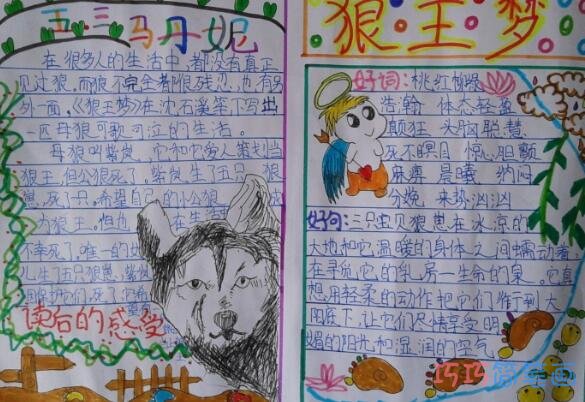 五三 马丹妮
在很多人的生活中，都没有真正
见过狼。而狼不完全都很残忍，也有另
外一面，《狼王梦》在沈石溪笔下写出
一匹母狼可歌可泣的生活。
母狼叫紫岚，它和它爱人策划当
狼王，但公狼死了，紫岚生了五只 狼
崽，死了一只。希望自己的小公狼 出
为狼王。但也 在生活
不幸死了，唯一的女
儿生了五只狼崽，紫岚
用保护它们，死了
读后的感受
狼王梦
好词：桃红柳绿
浩瀚 体态轻盈
癫狂 头脑聪慧
死不瞑目 惊心胆颤
麻痹 晨曦 纳闷
分娩 来势汹汹
好句：三只宝贝狼崽在冰凉的
大地和它温暖的身体之间蠕动着，
在寻觅它的乳房一生命的泉。它真
想用轻柔的动作把它们衔到太
阳底下，让它们尽情享受明
媚的阳光和湿润的空气。